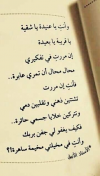 وأنتِ يا عنيدة يا شقية
يا قريبة يا بعيدة
إن مررتِ في تفكيري
محال محال أن تمري عابرة..
فأنتِ إن مررت
تشتتين ذهني وتقلبين دمي
وتتركين خلايا جسمي حائرة..
فكيف يغفو لي جفن بربك
وأنتِ في مخيلتي مخيمة ساهرة!؟